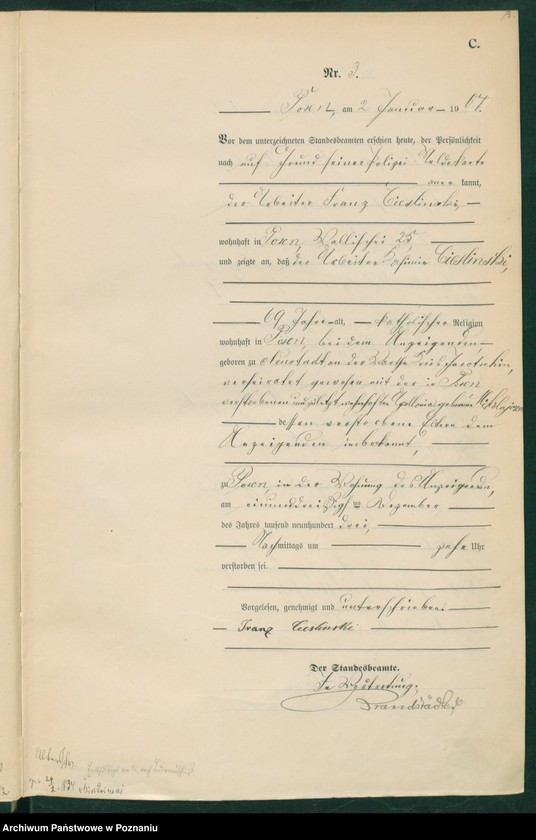 C.
Nr. 3.
Posen, am 2 Januar 1904.
Vor dem unterzeichneten Standesbeamten erschien heute, der Persönlichkeit
nach auf Grund seiner Polizei Meldekarte
aner kannt,
der Arbeiter Franz Cieslinski,
wohnhaft in Posen, Wallischei 25,
und zeigte an, daß der Arbeiter Casimir Cieslinski,
69 Jahre alt, katholischer Religion
wohnhaft in Posen, bei dem Anzeigenden
geboren zu Neustadt an der Warthe Kreis Jarotschin,
verheiratet gewesen mit der in Posen
verstorbenen und zuletzt wohnhaften geborenen
dessen verstorbene Eltern dem
Anzeigenden unbekannt,
zu Posen, in der Wohnung des Anzeigenden,
am einunddreißigsten Dezember
des Jahres tausend neunhundert drei,
Nachmittags um zehn Uhr
verstorben sei.
Vorgelesen, genehmigt und unterschrieben.
Franz Cieslinski
Der Standesbeamte.
In Vertretung:
Brandstädter
Archiwum Państwowe w Poznaniu